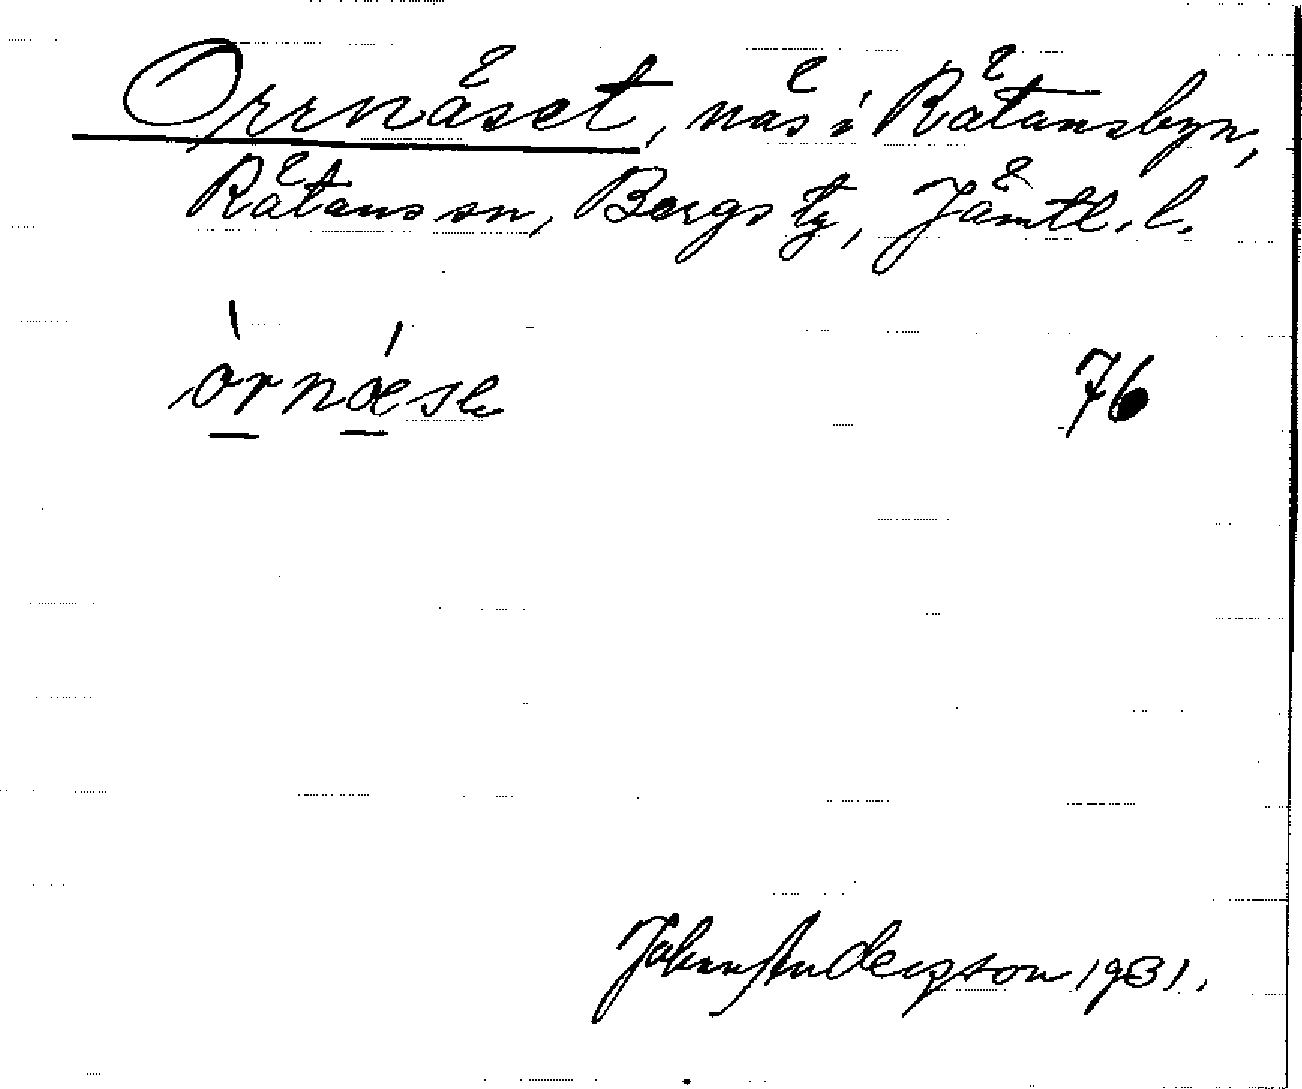 Orrnäset, näs i Rätansbyn,
Rätans sn, Bergs tg, Jämtl. l.
òrnǽsɘ 76
Johan Anderzson 1931.